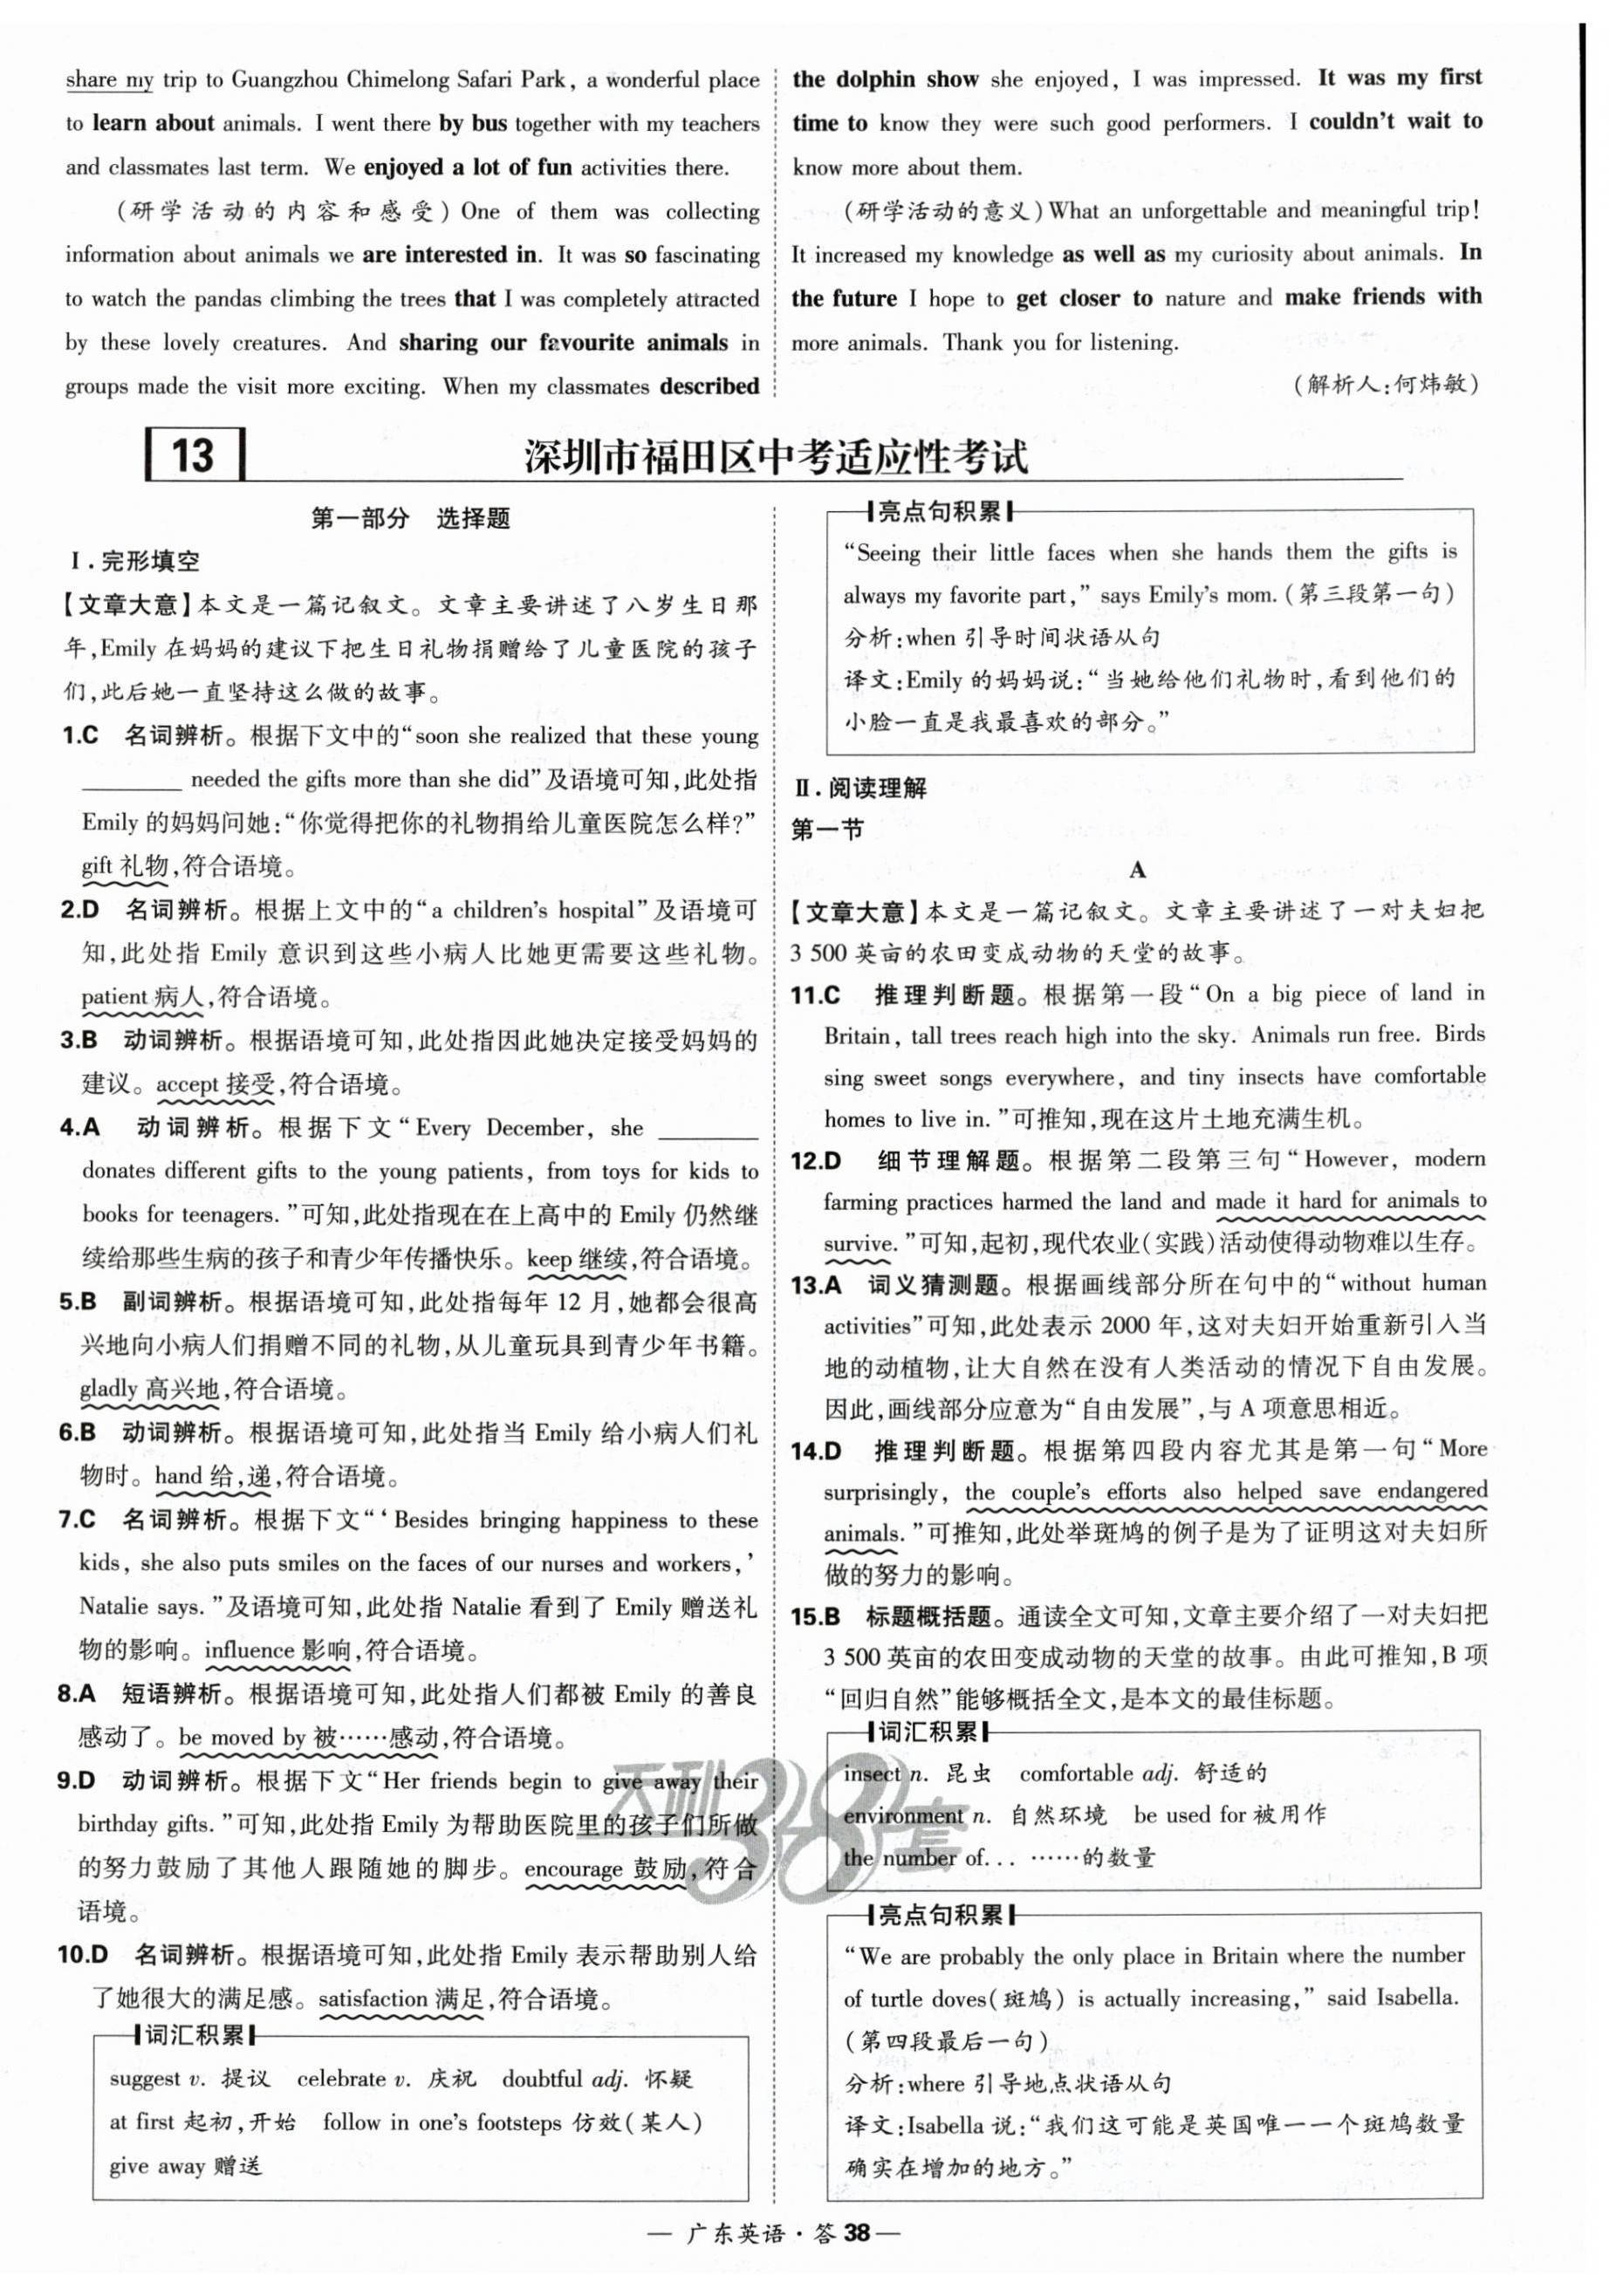 share my trip to Guangzhou Chimelong Safari Park, a wonderful place
to learn about animals. I went there by bus together with my teachers
and classmates last term. We enjoyed a lot of fun activities there.
(研学活动的内容和感受)One of them was collecting
information about animals we are interested in. It was so fascinating
to watch the pandas climbing the trees that I was completely attracted
by these lovely creatures. And sharing our favourite animals in
groups made the visit more exciting. When my classmates described
the dolphin show she enjoyed, I was impressed. It was my first
time to know they were such good performers. I couldn't wait to
know more about them.
(研学活动的意义)What an unforgettable and meaningful trip!
It increased my knowledge as well as my curiosity about animals. In
the future I hope to get closer to nature and make friends with
more animals. Thank you for listening.
(解析人:何炜敏)
13 深圳市福田区中考适应性考试
第一部分 选择题
Ⅰ.完形填空
【文章大意】本文是一篇记叙文。文章主要讲述了八岁生日那
年,Emily 在妈妈的建议下把生日礼物捐赠给了儿童医院的孩子
们,此后她一直坚持这么做的故事。
1.C 名词辨析。根据下文中的“soon she realized that these young
________ needed the gifts more than she did”及语境可知,此处指
Emily 的妈妈问她:“你觉得把你的礼物捐给儿童医院怎么样?”
gift 礼物,符合语境。
2.D 名词辨析。根据上文中的“a children's hospital”及语境可
知,此处指 Emily 意识到这些小病人比她更需要这些礼物。
patient 病人,符合语境。
3.B 动词辨析。根据语境可知,此处指因此她决定接受妈妈的
建议。accept 接受,符合语境。
4.A 动词辨析。根据下文“Every December, she ________
donates different gifts to the young patients, from toys for kids to
books for teenagers.”可知,此处指现在在上高中的 Emily 仍然继
续给那些生病的孩子和青少年传播快乐。keep 继续,符合语境。
5.B 副词辨析。根据语境可知,此处指每年 12 月,她都会很高
兴地向小病人们捐赠不同的礼物,从儿童玩具到青少年书籍。
gladly 高兴地,符合语境。
6.B 动词辨析。根据语境可知,此处指当 Emily 给小病人们礼
物时。hand 给,递,符合语境。
7.C 名词辨析。根据下文“‘Besides bringing happiness to these
kids, she also puts smiles on the faces of our nurses and workers,’
Natalie says.”及语境可知,此处指 Natalie 看到了 Emily 赠送礼
物的影响。influence 影响,符合语境。
8.A 短语辨析。根据语境可知,此处指人们都被 Emily 的善良
感动了。be moved by 被……感动,符合语境。
9.D 动词辨析。根据下文“Her friends begin to give away their
birthday gifts.”可知,此处指 Emily 为帮助医院里的孩子们所做
的努力鼓励了其他人跟随她的脚步。encourage 鼓励,符合
语境。
10.D 名词辨析。根据语境可知,此处指 Emily 表示帮助别人给
了她很大的满足感。satisfaction 满足,符合语境。
词汇积累
suggest v. 提议 celebrate v. 庆祝 doubtful adj. 怀疑
at first 起初,开始 follow in one's footsteps 仿效(某人)
give away 赠送
亮点句积累
“Seeing their little faces when she hands them the gifts is
always my favorite part,” says Emily's mom.(第三段第一句)
分析:when 引导时间状语从句
译文:Emily 的妈妈说:“当她给他们礼物时,看到他们的
小脸一直是我最喜欢的部分。”
Ⅱ.阅读理解
第一节
A
【文章大意】本文是一篇记叙文。文章主要讲述了一对夫妇把
3 500 英亩的农田变成动物的天堂的故事。
11.C 推理判断题。根据第一段“On a big piece of land in
Britain, tall trees reach high into the sky. Animals run free. Birds
sing sweet songs everywhere, and tiny insects have comfortable
homes to live in.”可推知,现在这片土地充满生机。
12.D 细节理解题。根据第二段第三句“However, modern
farming practices harmed the land and made it hard for animals to
survive.”可知,起初,现代农业(实践)活动使得动物难以生存。
13.A 词义猜测题。根据画线部分所在句中的“without human
activities”可知,此处表示 2000 年,这对夫妇开始重新引入当
地的动植物,让大自然在没有人类活动的情况下自由发展。
因此,画线部分应意为“自由发展”,与 A 项意思相近。
14.D 推理判断题。根据第四段内容尤其是第一句“More
surprisingly, the couple's efforts also helped save endangered
animals.”可推知,此处举斑鸠的例子是为了证明这对夫妇所
做的努力的影响。
15.B 标题概括题。通读全文可知,文章主要介绍了一对夫妇把
3 500 英亩的农田变成动物的天堂的故事。由此可推知,B 项
“回归自然”能够概括全文,是本文的最佳标题。
词汇积累
insect n. 昆虫 comfortable adj. 舒适的
environment n. 自然环境 be used for 被用作
the number of... ……的数量
亮点句积累
“We are probably the only place in Britain where the number
of turtle doves(斑鸠) is actually increasing,” said Isabella.
(第四段最后一句)
分析:where 引导地点状语从句
译文:Isabella 说:“我们这可能是英国唯一一个斑鸠数量
确实在增加的地方。”
天利38套
— 广东英语·答 38 —